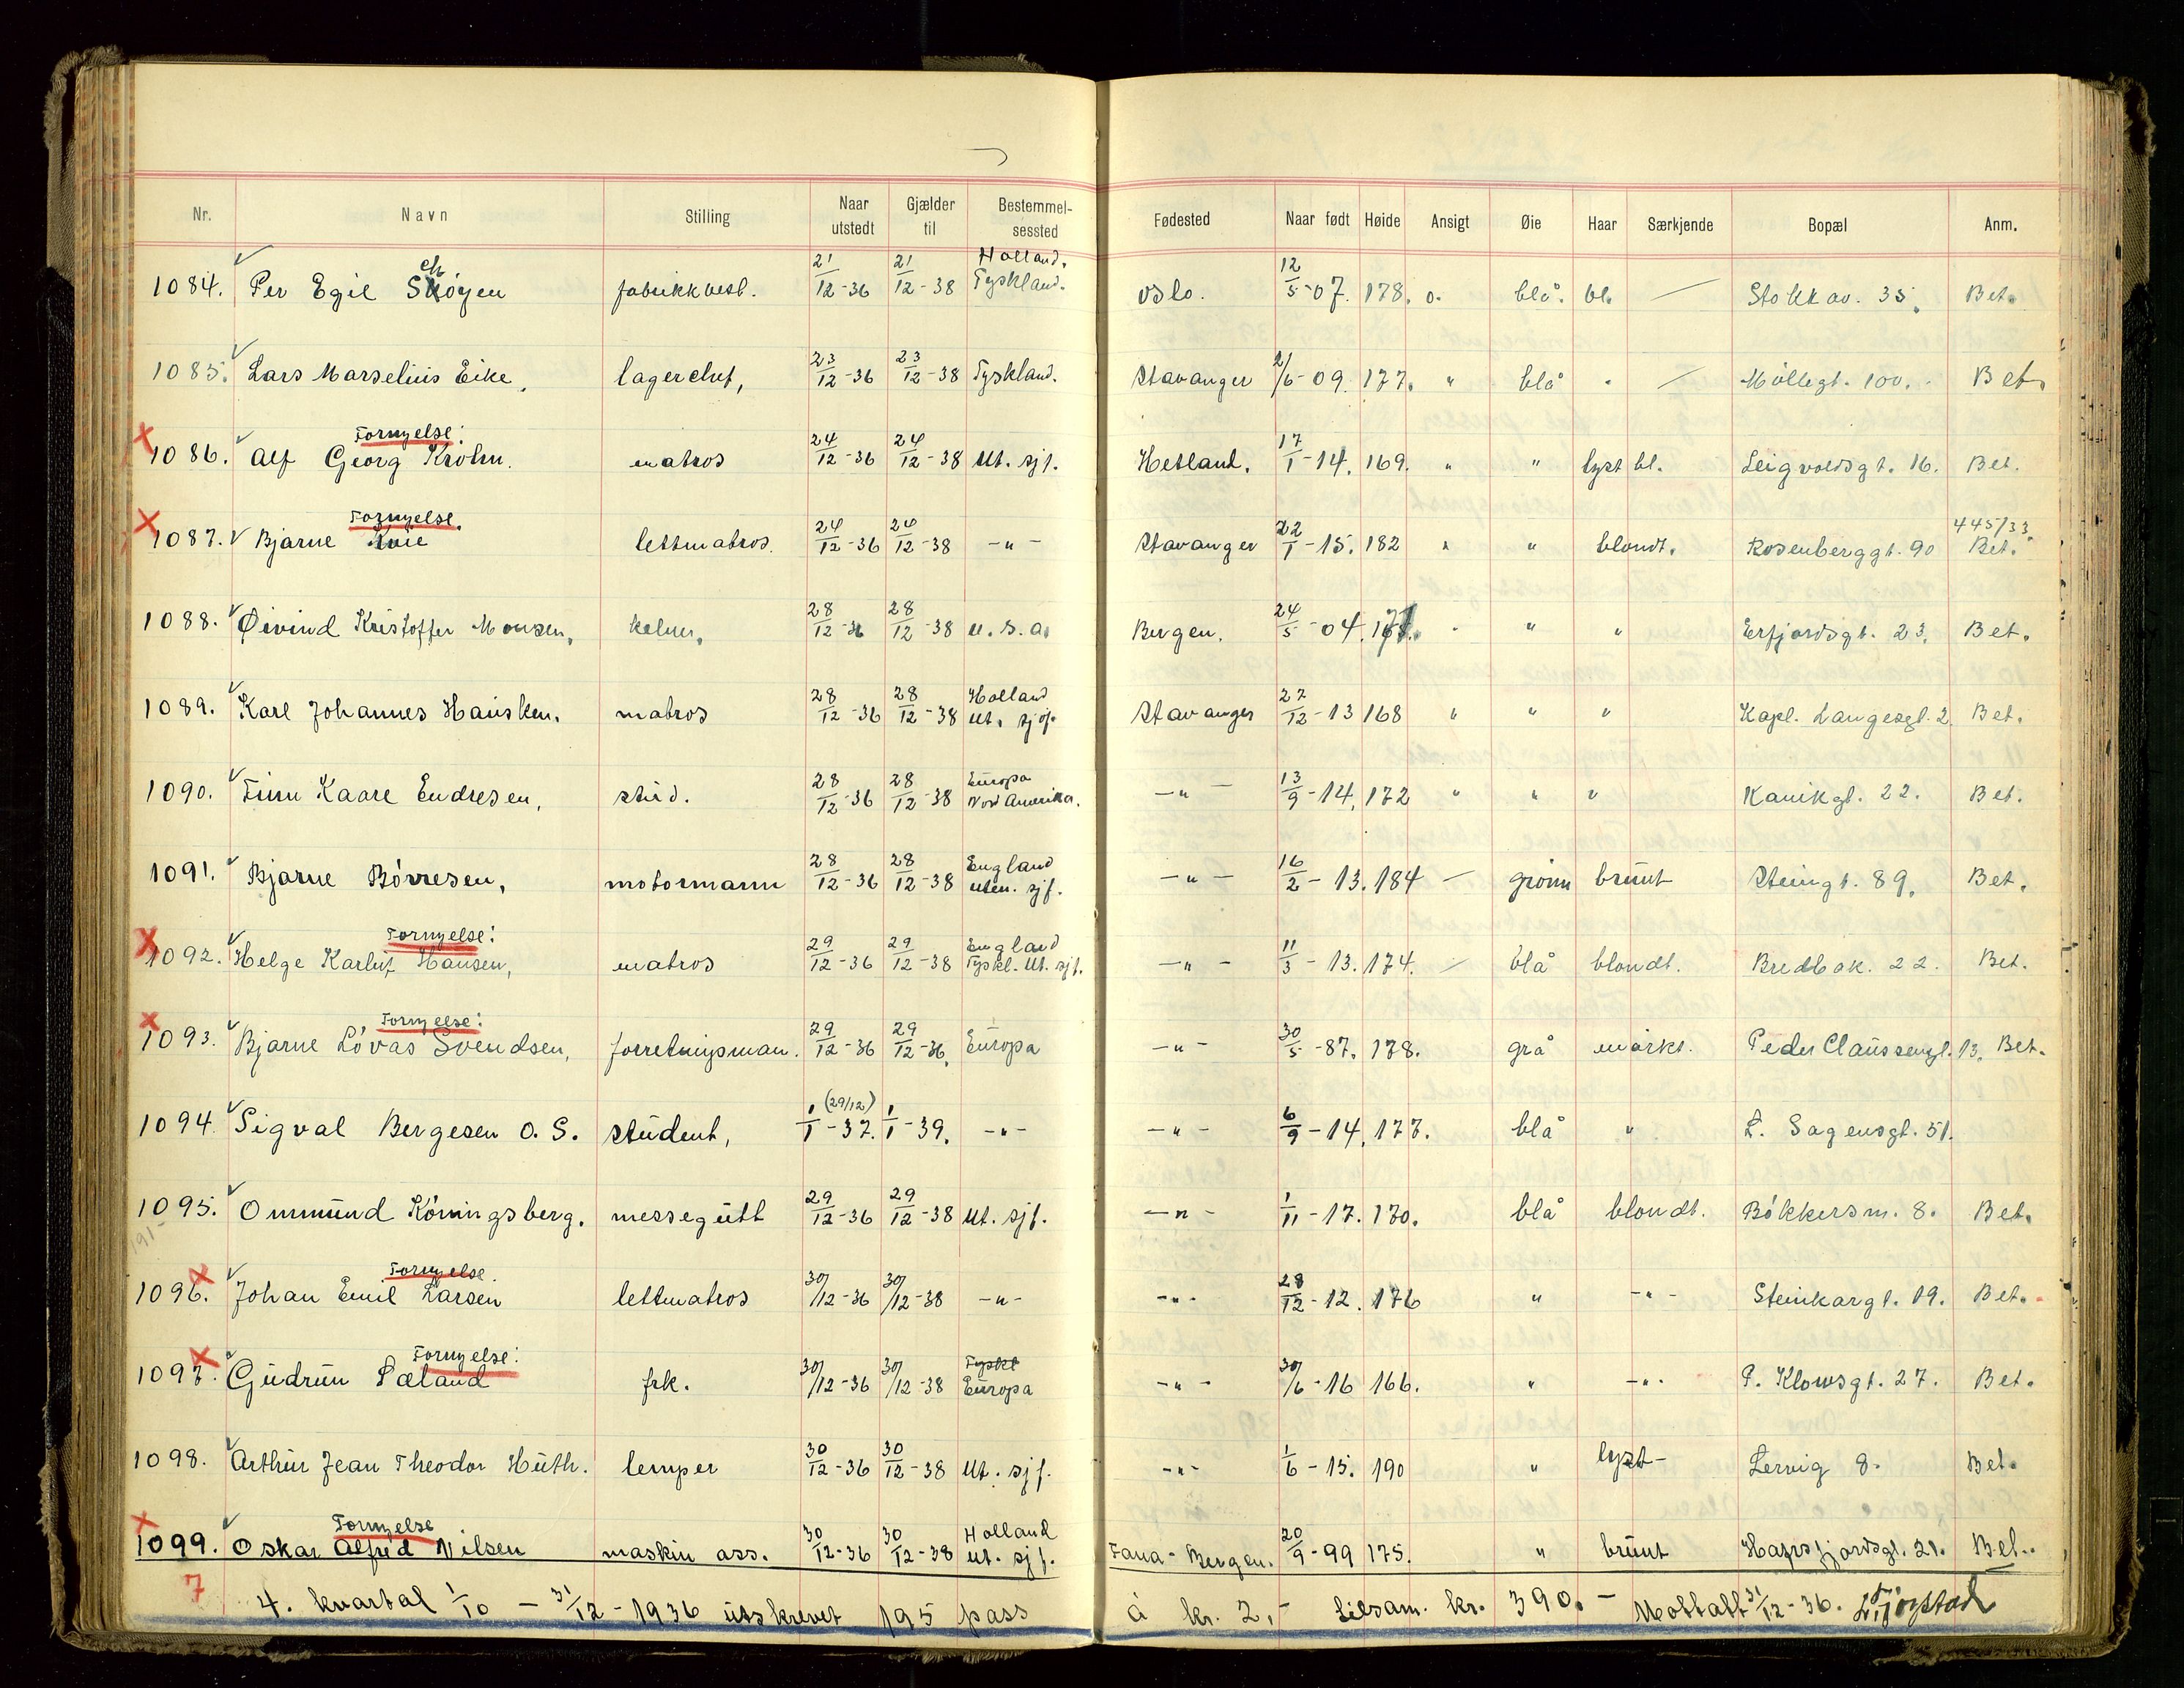 Nr. Navn Stilling Naar utstedt Gjælder til Bestemmel-sessted Fødested Naar født Høide Ansigt Øie Haar Særkjende Bopæl Anm.
1084. Per Egil Schøyen fabrikkbest. 21/12-36 21/12-38 Holland. Tyskland. Oslo. 12/5-07. 178. o. blå. bl. — Stokkav. 35. Bet.
1085. Lars Marselius Eike, lagerchef, 23/12-36 23/12-38 Tyskland. Stavanger 2/6-09. 177. " blå " — Møllegt. 100. Bet.
1086. Fornyelse: Alf Georg Krohn. matros 24/12-36 24/12-38 Ut. sjf. Hetland. 17/1-14. 169. " " lyst bl. Leigvoldsgt. 16. Bet.
1087. Fornyelse. Bjarne Kvie lettmatros. 24/12-36 24/12-38 -"- Stavanger 22/1-15. 182 " " blondt. Rosenberggt. 90 445/33. Bet.
1088. Øivind Kristoffer Monsen, kelner, 28/12-36 28/12-38 U.S.A. Bergen. 24/5-04. " " " Erfjordsgt. 23. Bet.
1089. Karl Johannes Hausken. matros 28/12-36 28/12-38 Holland Ut. sjf. Stavanger 27/12-13 168 " " " Kapl. Langesgt. 2 Bet.
1090. Finn Kaare Endresen, stud. 28/12-36 28/12-38 Europa Nord Amerika. -"- 13/9-14. 172 " " " Kanikgt. 22. Bet.
1091. Bjarne Børresen, motormann 28/12-36 28/12-38 England uten. sjf. -"- 16/2-13. 184 — grønn brunt Steingt. 89. Bet.
1092. Fornyelse: Helge Karluf Hansen, matros 29/12-36 29/12-38 England Tyskl. Ut. sjf. -"- 11/3-13. 174. — blå blondt. Bredbak. 22. Bet.
1093. Fornyelse: Bjarne Løvås Svendsen, forretningsman. 29/12-36 29/12-36. Europa -"- 30/5-87. 178. grå mørkt. Peder Claussengt. 13. Bet.
1094. Sigval Bergesen O. S. student, (29/12) 1/1-37. 1/1-39. -"- -"- 6/9-14. 177. blå " L. Sagensgt. 51.
1095. Ommund Køningsberg. messegutt 29/12-36 29/12-38 Ut. sjf. -"- 1/11-17. 170. blå blondt. Bøkkersm. 8. Bet.
1096. Fornyelse. Johan Emil Larsen lettmatros 30/12-36 30/12-38 -"- -"- 28/12-12. 176 " -"- Steinkargt. 19. Bet.
1097. Fornyelse: Gudrun Pæland frk. 30/12-36 30/12-38 Tyskl Europa -"- 30/6-16 166. " -"- P. Klowsgt. 27. Bet.
1098. Arthur Jean Theodor Huth. lemper 30/12-36 30/12-38 Ut. sjf. -"- 1/6-15. 190 " lyst- Lervig 8. Bet.
1099. Fornyelse Oskar Alfred Nilsen maskin ass. 30/12-36 30/12-38 Holland Ut. sjf. Fana-Bergen. 20/9-99 175. " brunt Hafrsfjordsgt. 21. Bet.
7 4. kvartal 1/10 - 31/12-1936 utskrevet 195 pass à kr. 2,- tilsam. kr. 390.- Mottatt 31/12-36.